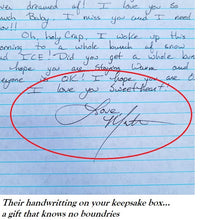 ever dreamed of! I love you so
much Baby! I miss you and I need
you!!
Oh, holy Crap, I woke up this
morning to a whole bunch of snow
and ICE! Did you get a whole bunch
I hope you are staying Warm and
everyone is OK! I hope you are
I love you SweetHeart.
Love
Their handwritting on your keepsake box...
a gift that knows no boundries